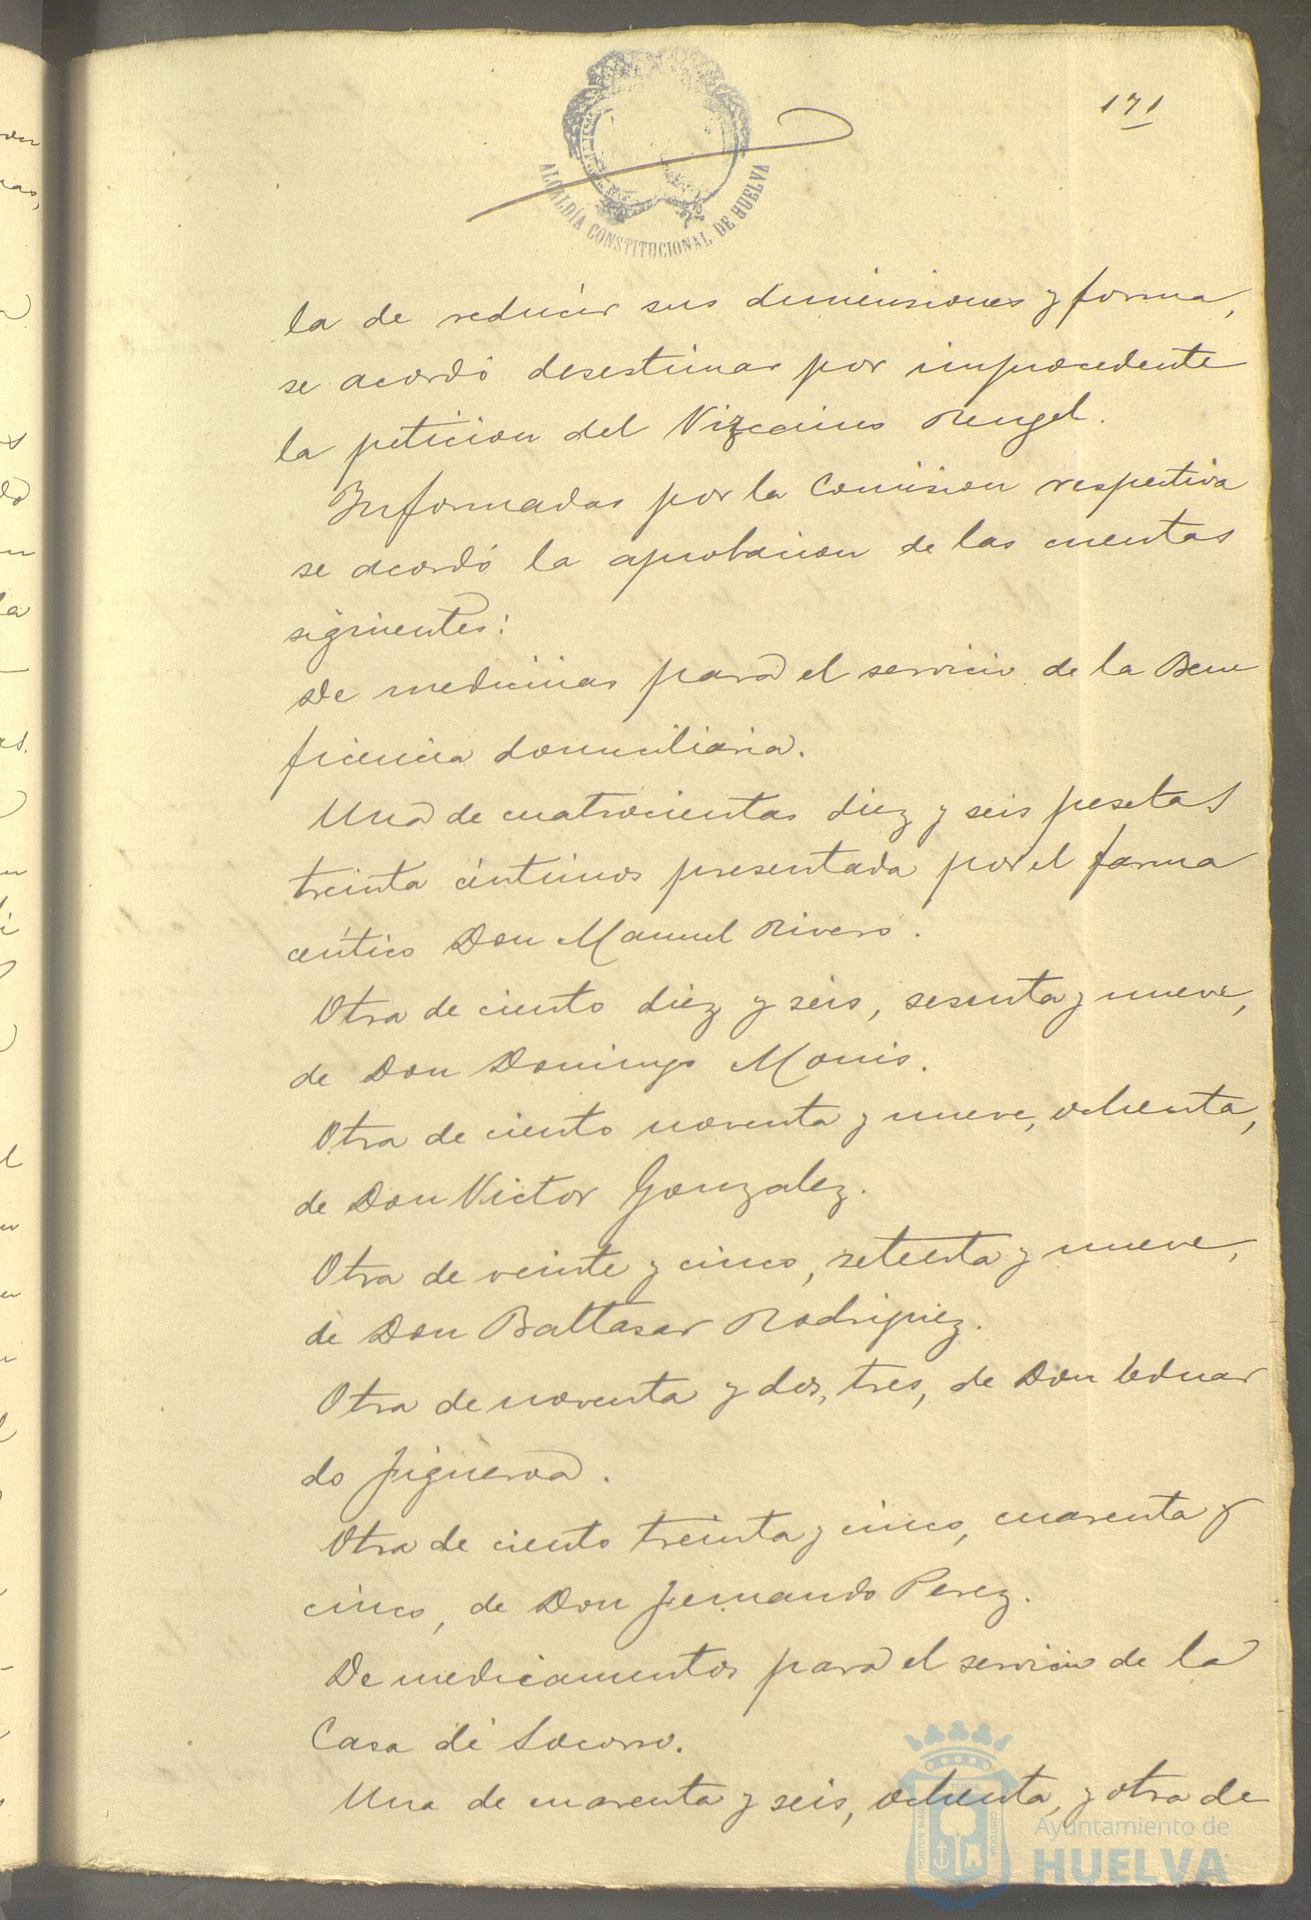 171
ALCALDÍA CONSTITUCIONAL DE HUELVA
la de reducir sus dimensiones y forma,
se acordó desestimar por improcedente
la peticion del Vizcaino Rengel.
Informadas por la Comision respectiva
se acordó la aprobacion de las cuentas
siguientes:
De medicinas para el servicio de la Bene
ficencia domiciliaria.
Una de cuatrocientas diez y seis pesetas
treinta céntimos presentada por el farma
céutico Don Manuel Rivero.
Otra de ciento diez y seis, sesenta y nueve,
de Don Domingo Monis.
Otra de ciento noventa y nueve, ochenta,
de Don Victor Gonzalez.
Otra de veinte y cinco, setenta y nueve,
de Don Baltasar Rodriguez.
Otra de noventa y dos, tres, de Don Eduar
do Figueroa.
Otra de ciento treinta y cinco, cuarenta y
cinco, de Don Fernando Perez.
De medicamentos para el servicio de la
Casa de Socorro.
Una de cuarenta y seis, ochenta, y otra de
Ayuntamiento de
HUELVA